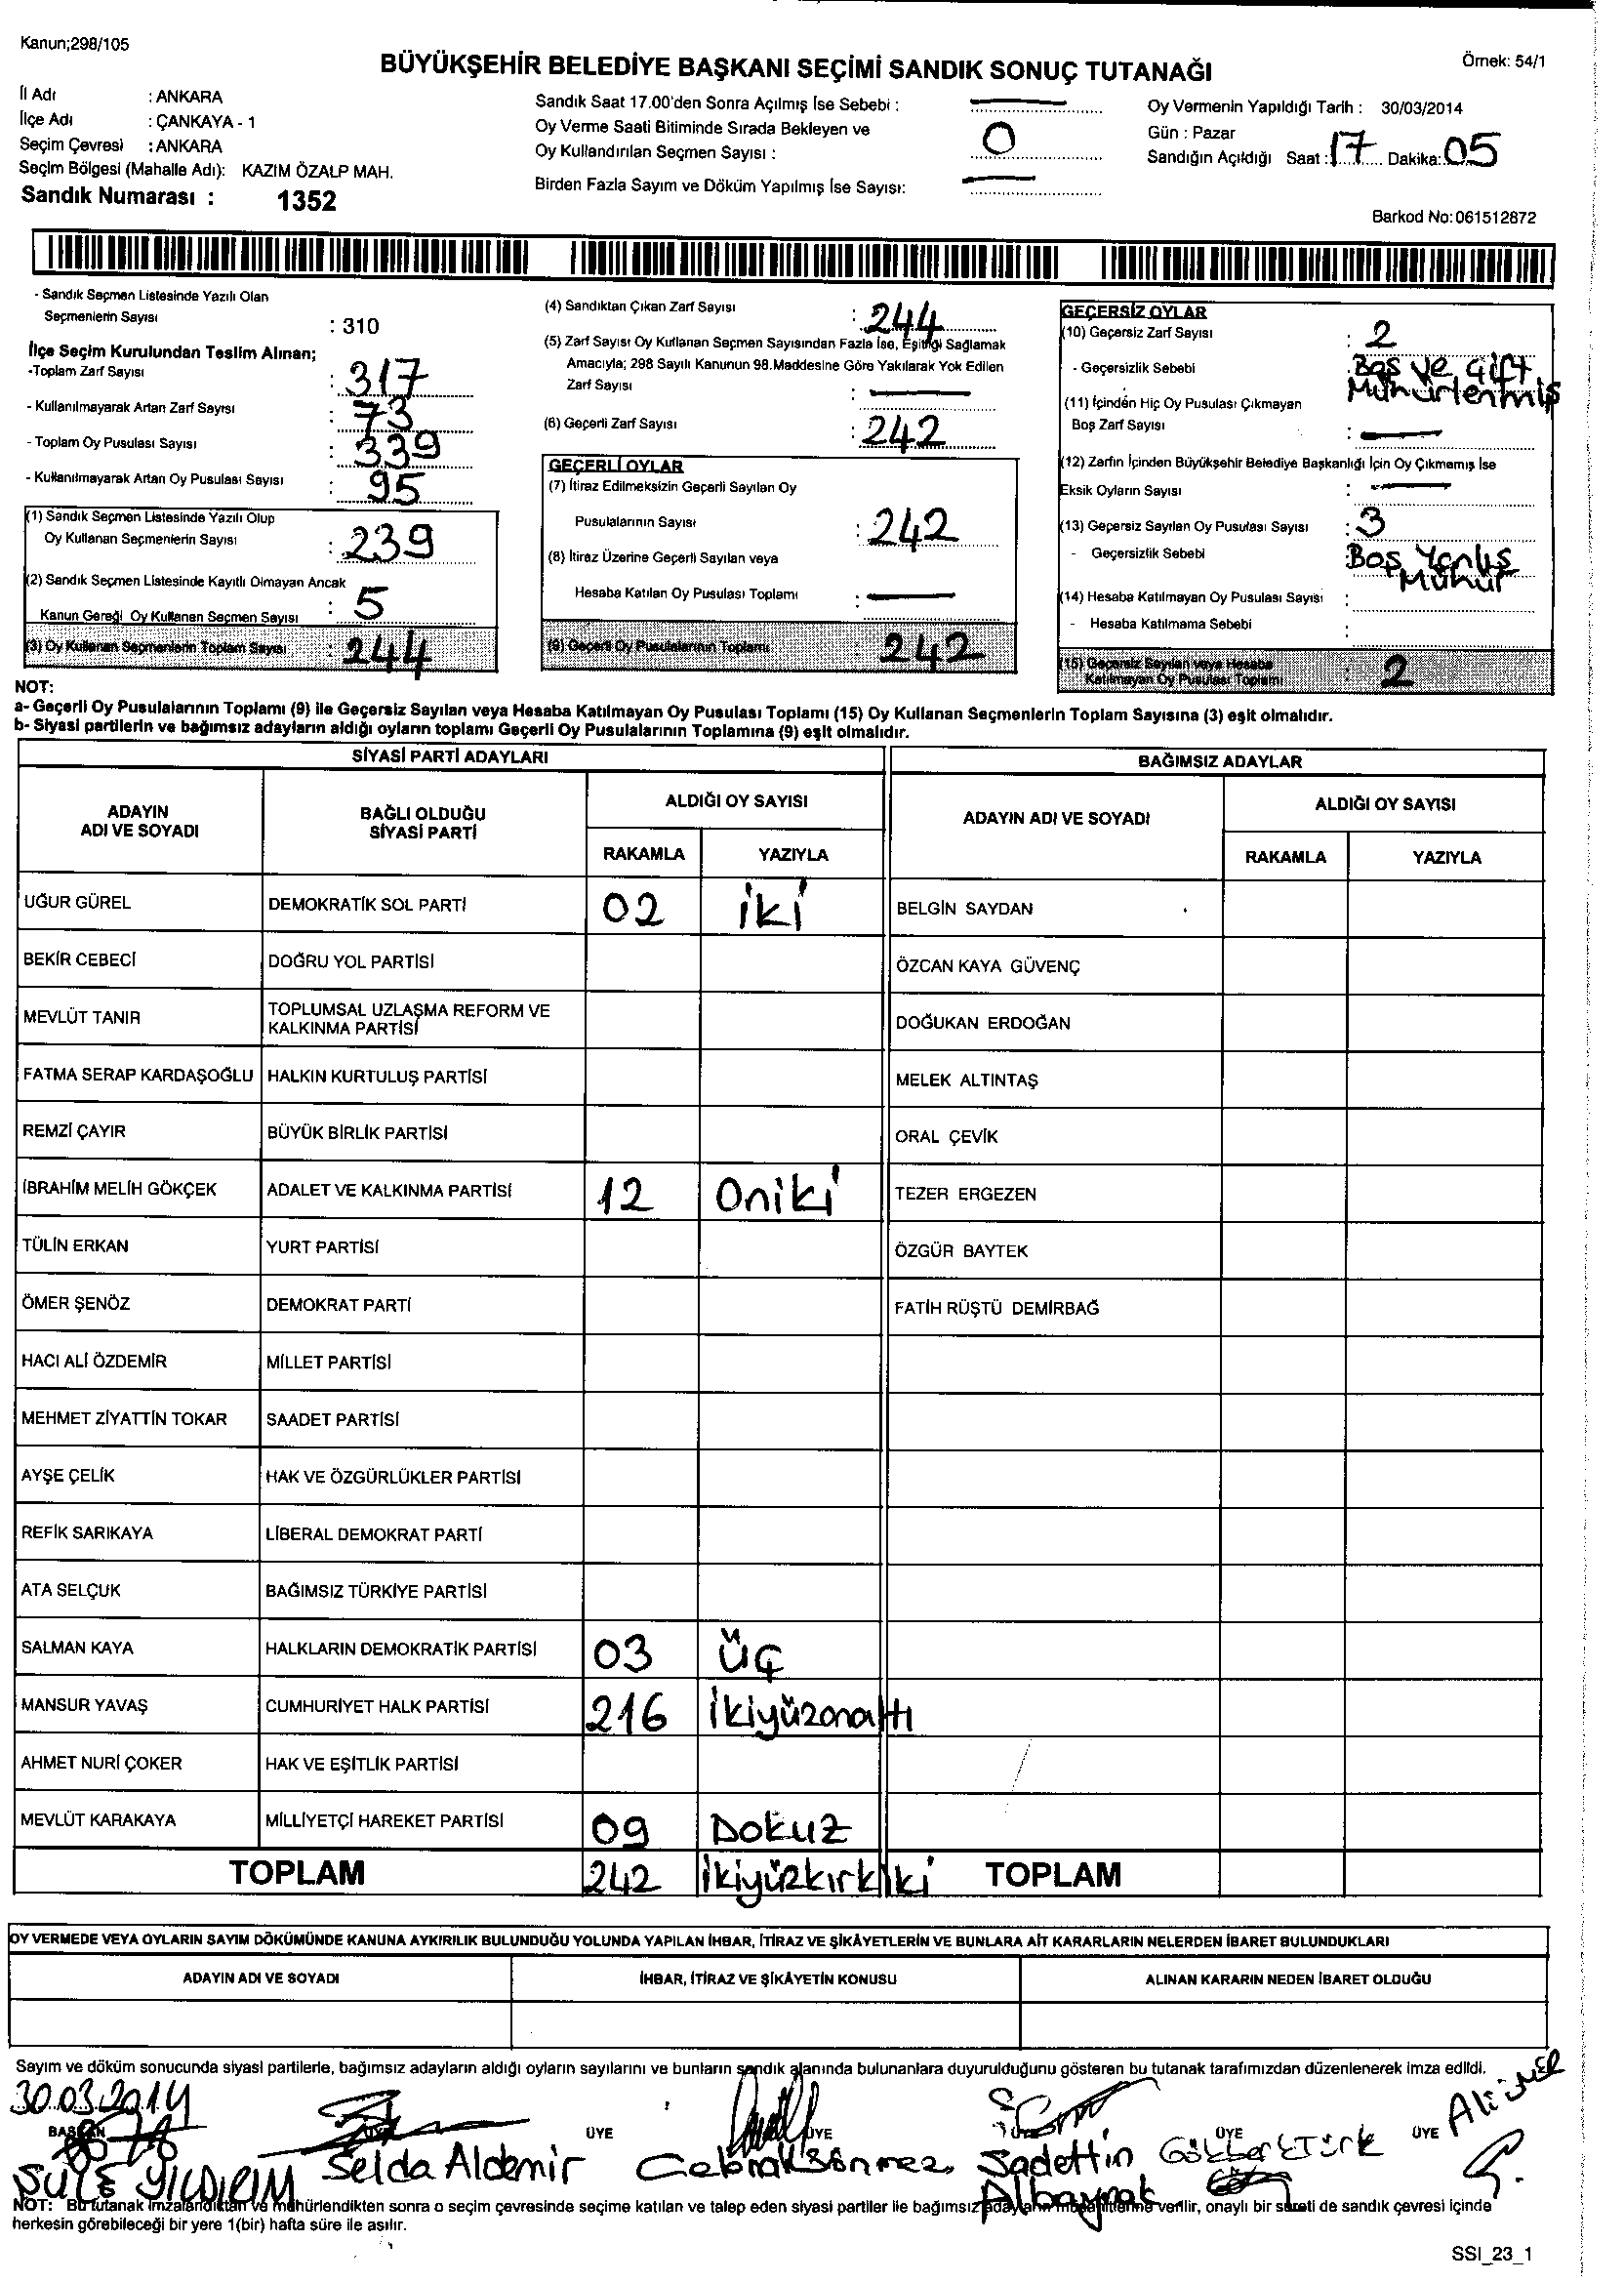 Kanun;298/105
BÜYÜKŞEHİR BELEDİYE BAŞKANI SEÇİMİ SANDIK SONUÇ TUTANAĞI
Örnek: 54/1
İl Adı : ANKARA
İlçe Adı : ÇANKAYA - 1
Seçim Çevresi : ANKARA
Seçim Bölgesi (Mahalle Adı): KAZIM ÖZALP MAH.
Sandık Numarası : 1352
Sandık Saat 17.00'den Sonra Açılmış İse Sebebi :
Oy Verme Saati Bitiminde Sırada Bekleyen ve
Oy Kullandırılan Seçmen Sayısı : 0
Birden Fazla Sayım ve Döküm Yapılmış İse Sayısı:
Oy Vermenin Yapıldığı Tarih : 30/03/2014
Gün : Pazar
Sandığın Açıldığı Saat : 17 Dakika: 05
Barkod No: 061512872
- Sandık Seçmen Listesinde Yazılı Olan
Seçmenlerin Sayısı : 310
İlçe Seçim Kurulundan Teslim Alınan;
-Toplam Zarf Sayısı : 317
- Kullanılmayarak Artan Zarf Sayısı : 73
- Toplam Oy Pusulası Sayısı : 339
- Kullanılmayarak Artan Oy Pusulası Sayısı : 95
(1) Sandık Seçmen Listesinde Yazılı Olup
Oy Kullanan Seçmenlerin Sayısı : 239
(2) Sandık Seçmen Listesinde Kayıtlı Olmayan Ancak
Kanun Gereği Oy Kullanan Seçmen Sayısı : 5
(3) Oy Kullanan Seçmenlerin Toplam Sayısı : 244
(4) Sandıktan Çıkan Zarf Sayısı : 244
(5) Zarf Sayısı Oy Kullanan Seçmen Sayısından Fazla İse, Eşitliği Sağlamak
Amacıyla; 298 Sayılı Kanunun 98.Maddesine Göre Yakılarak Yok Edilen
Zarf Sayısı :
(6) Geçerli Zarf Sayısı : 242
GEÇERLİ OYLAR
(7) İtiraz Edilmeksizin Geçerli Sayılan Oy
Pusulalarının Sayısı : 242
(8) İtiraz Üzerine Geçerli Sayılan veya
Hesaba Katılan Oy Pusulası Toplamı :
(9) Geçerli Oy Pusulalarının Toplamı : 242
GEÇERSİZ OYLAR
(10) Geçersiz Zarf Sayısı : 2
- Geçersizlik Sebebi : Boş ve çift
Mühürlenmiş
(11) İçinden Hiç Oy Pusulası Çıkmayan
Boş Zarf Sayısı :
(12) Zarfın İçinden Büyükşehir Belediye Başkanlığı İçin Oy Çıkmamış İse
Eksik Oyların Sayısı :
(13) Geçersiz Sayılan Oy Pusulası Sayısı : 3
- Geçersizlik Sebebi : Boş Yanlış
Mühür
(14) Hesaba Katılmayan Oy Pusulası Sayısı :
- Hesaba Katılmama Sebebi :
(15) Geçersiz Sayılan veya Hesaba
Katılmayan Oy Pusulası Toplamı : 2
NOT:
a- Geçerli Oy Pusulalarının Toplamı (9) ile Geçersiz Sayılan veya Hesaba Katılmayan Oy Pusulası Toplamı (15) Oy Kullanan Seçmenlerin Toplam Sayısına (3) eşit olmalıdır.
b- Siyasi partilerin ve bağımsız adayların aldığı oyların toplamı Geçerli Oy Pusulalarının Toplamına (9) eşit olmalıdır.
SİYASİ PARTİ ADAYLARI
ADAYIN ADI VE SOYADI BAĞLI OLDUĞU SİYASİ PARTİ ALDIĞI OY SAYISI
RAKAMLA YAZIYLA
UĞUR GÜREL DEMOKRATİK SOL PARTİ 02 iki
BEKİR CEBECİ DOĞRU YOL PARTİSİ
MEVLÜT TANIR TOPLUMSAL UZLAŞMA REFORM VE KALKINMA PARTİSİ
FATMA SERAP KARDAŞOĞLU HALKIN KURTULUŞ PARTİSİ
REMZİ ÇAYIR BÜYÜK BİRLİK PARTİSİ
İBRAHİM MELİH GÖKÇEK ADALET VE KALKINMA PARTİSİ 12 Oniki
TÜLİN ERKAN YURT PARTİSİ
ÖMER ŞENÖZ DEMOKRAT PARTİ
HACI ALİ ÖZDEMİR MİLLET PARTİSİ
MEHMET ZİYATTİN TOKAR SAADET PARTİSİ
AYŞE ÇELİK HAK VE ÖZGÜRLÜKLER PARTİSİ
REFİK SARIKAYA LİBERAL DEMOKRAT PARTİ
ATA SELÇUK BAĞIMSIZ TÜRKİYE PARTİSİ
SALMAN KAYA HALKLARIN DEMOKRATİK PARTİSİ 03 Üç
MANSUR YAVAŞ CUMHURİYET HALK PARTİSİ 216 İkiyüzonaltı
AHMET NURİ ÇOKER HAK VE EŞİTLİK PARTİSİ
MEVLÜT KARAKAYA MİLLİYETÇİ HAREKET PARTİSİ 09 Dokuz
TOPLAM 242 İkiyüzkırkiki
BAĞIMSIZ ADAYLAR
ADAYIN ADI VE SOYADI ALDIĞI OY SAYISI
RAKAMLA YAZIYLA
BELGİN SAYDAN
ÖZCAN KAYA GÜVENÇ
DOĞUKAN ERDOĞAN
MELEK ALTINTAŞ
ORAL ÇEVİK
TEZER ERGEZEN
ÖZGÜR BAYTEK
FATİH RÜŞTÜ DEMİRBAĞ
TOPLAM
OY VERMEDE VEYA OYLARIN SAYIM DÖKÜMÜNDE KANUNA AYKIRILIK BULUNDUĞU YOLUNDA YAPILAN İHBAR, İTİRAZ VE ŞİKÂYETLERİN VE BUNLARA AİT KARARLARIN NELERDEN İBARET BULUNDUKLARI
ADAYIN ADI VE SOYADI İHBAR, İTİRAZ VE ŞİKÂYETİN KONUSU ALINAN KARARIN NEDEN İBARET OLDUĞU
Sayım ve döküm sonucunda siyasi partilerle, bağımsız adayların aldığı oyların sayılarını ve bunların sandık alanında bulunanlara duyurulduğunu gösteren bu tutanak tarafımızdan düzenlenerek imza edildi.
30.03.2014
BAŞKAN ÜYE ÜYE ÜYE ÜYE
ŞULE YILDIRIM Selda Aldemir Sönmez Sadettin Albayrak Göktürk Ali
NOT: Bu tutanak imzalandıktan ve mühürlendikten sonra o seçim çevresinde seçime katılan ve talep eden siyasi partiler ile bağımsız adayların müşahitlerine verilir, onaylı bir sureti de sandık çevresi içinde
herkesin görebileceği bir yere 1(bir) hafta süre ile asılır.
SSI_23_1